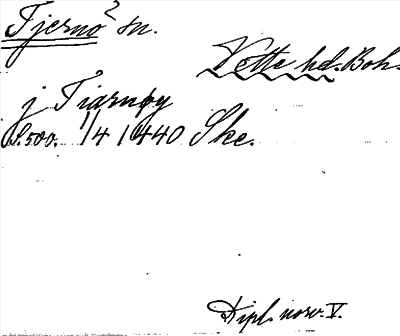 Tjernö² sn.
Vette hd. Boh.
j Tiarnøy
S. 500. 1/4 1440 Skc.
Dipl. norv. V.